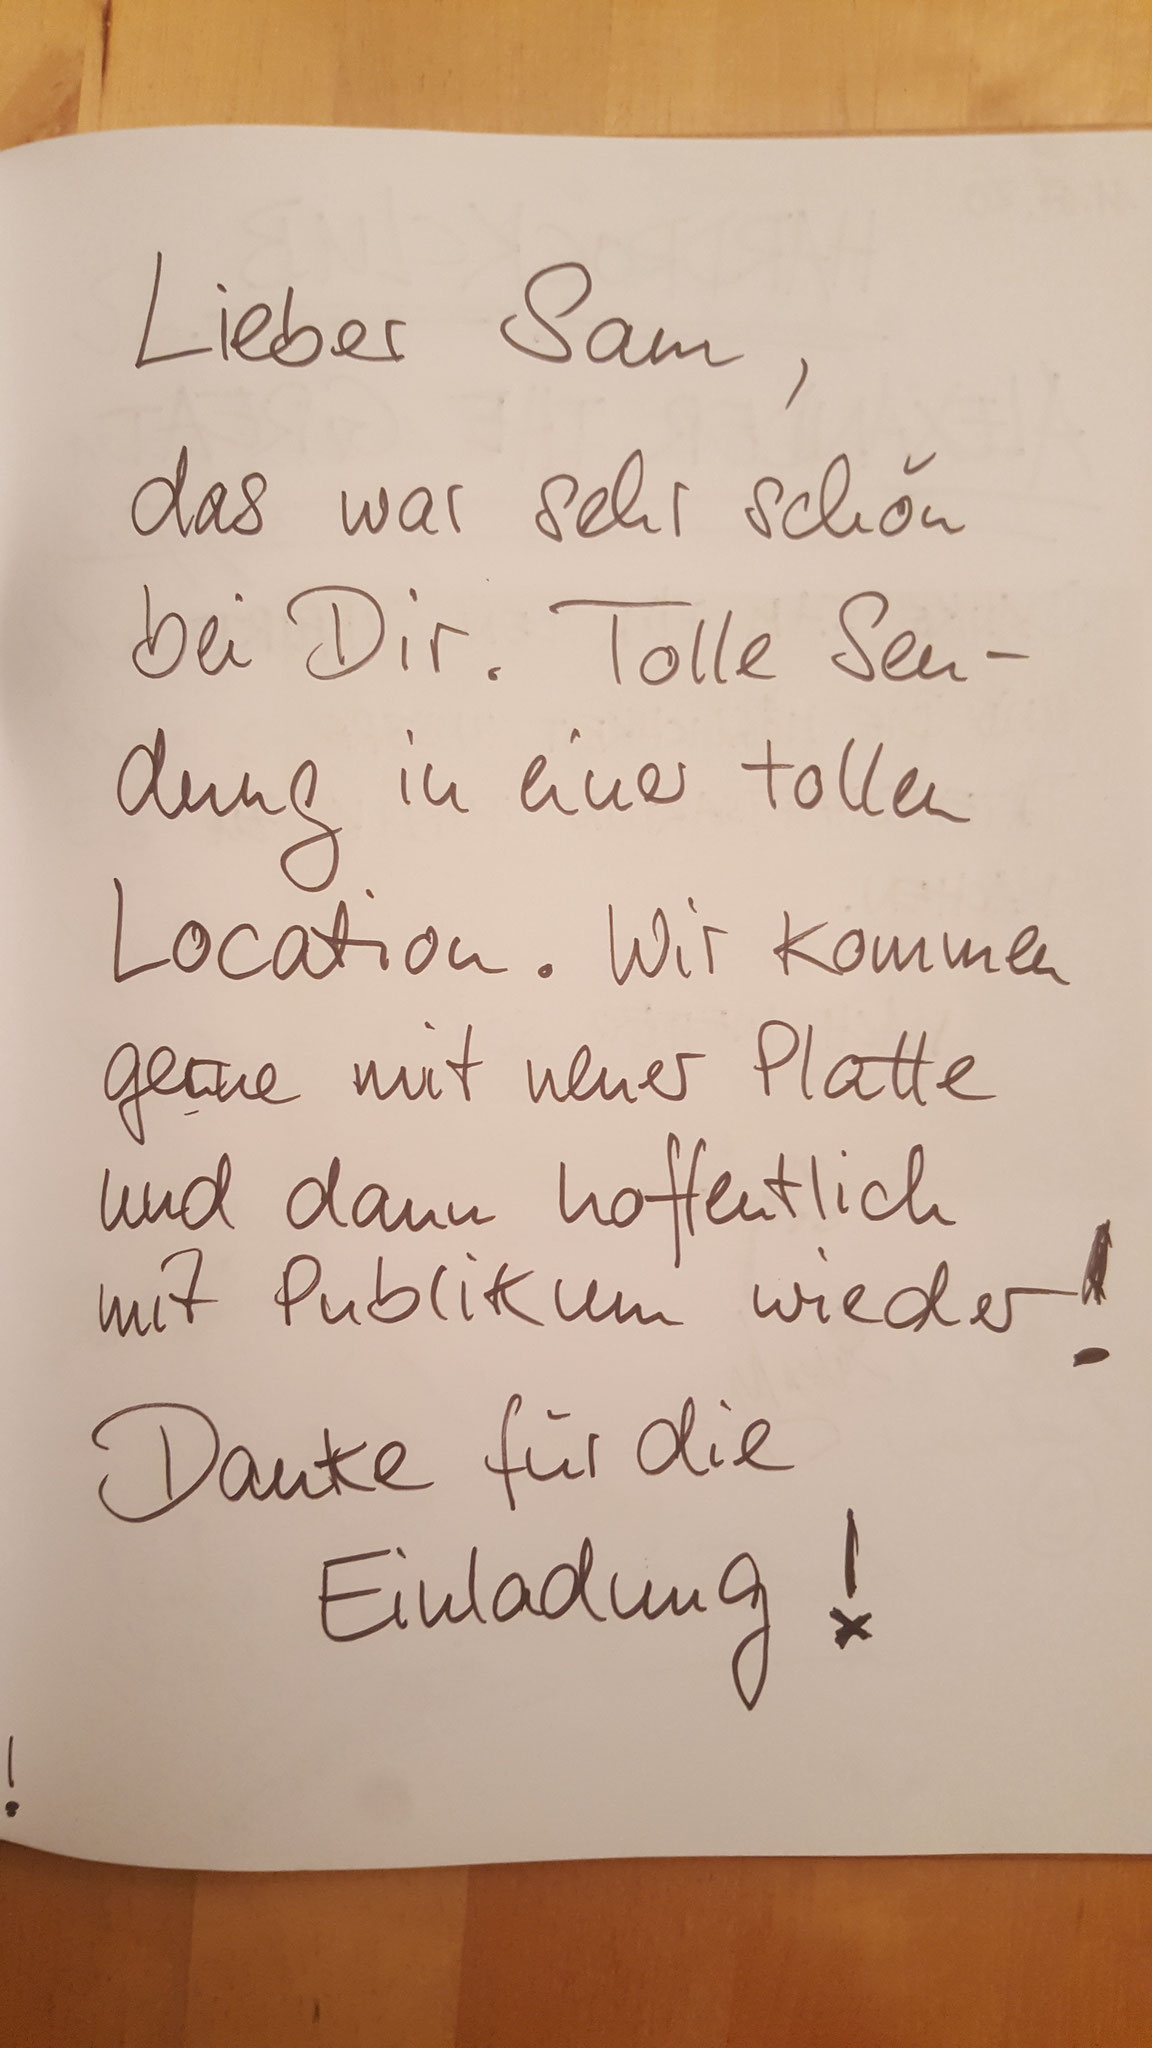 Lieber Sam,
das war sehr schön
bei Dir. Tolle Sen-
dung in einer tollen
Location. Wir kommen
gerne mit neuer Platte
und dann hoffentlich
mit Publikum wieder!
Danke für die
Einladung!
!